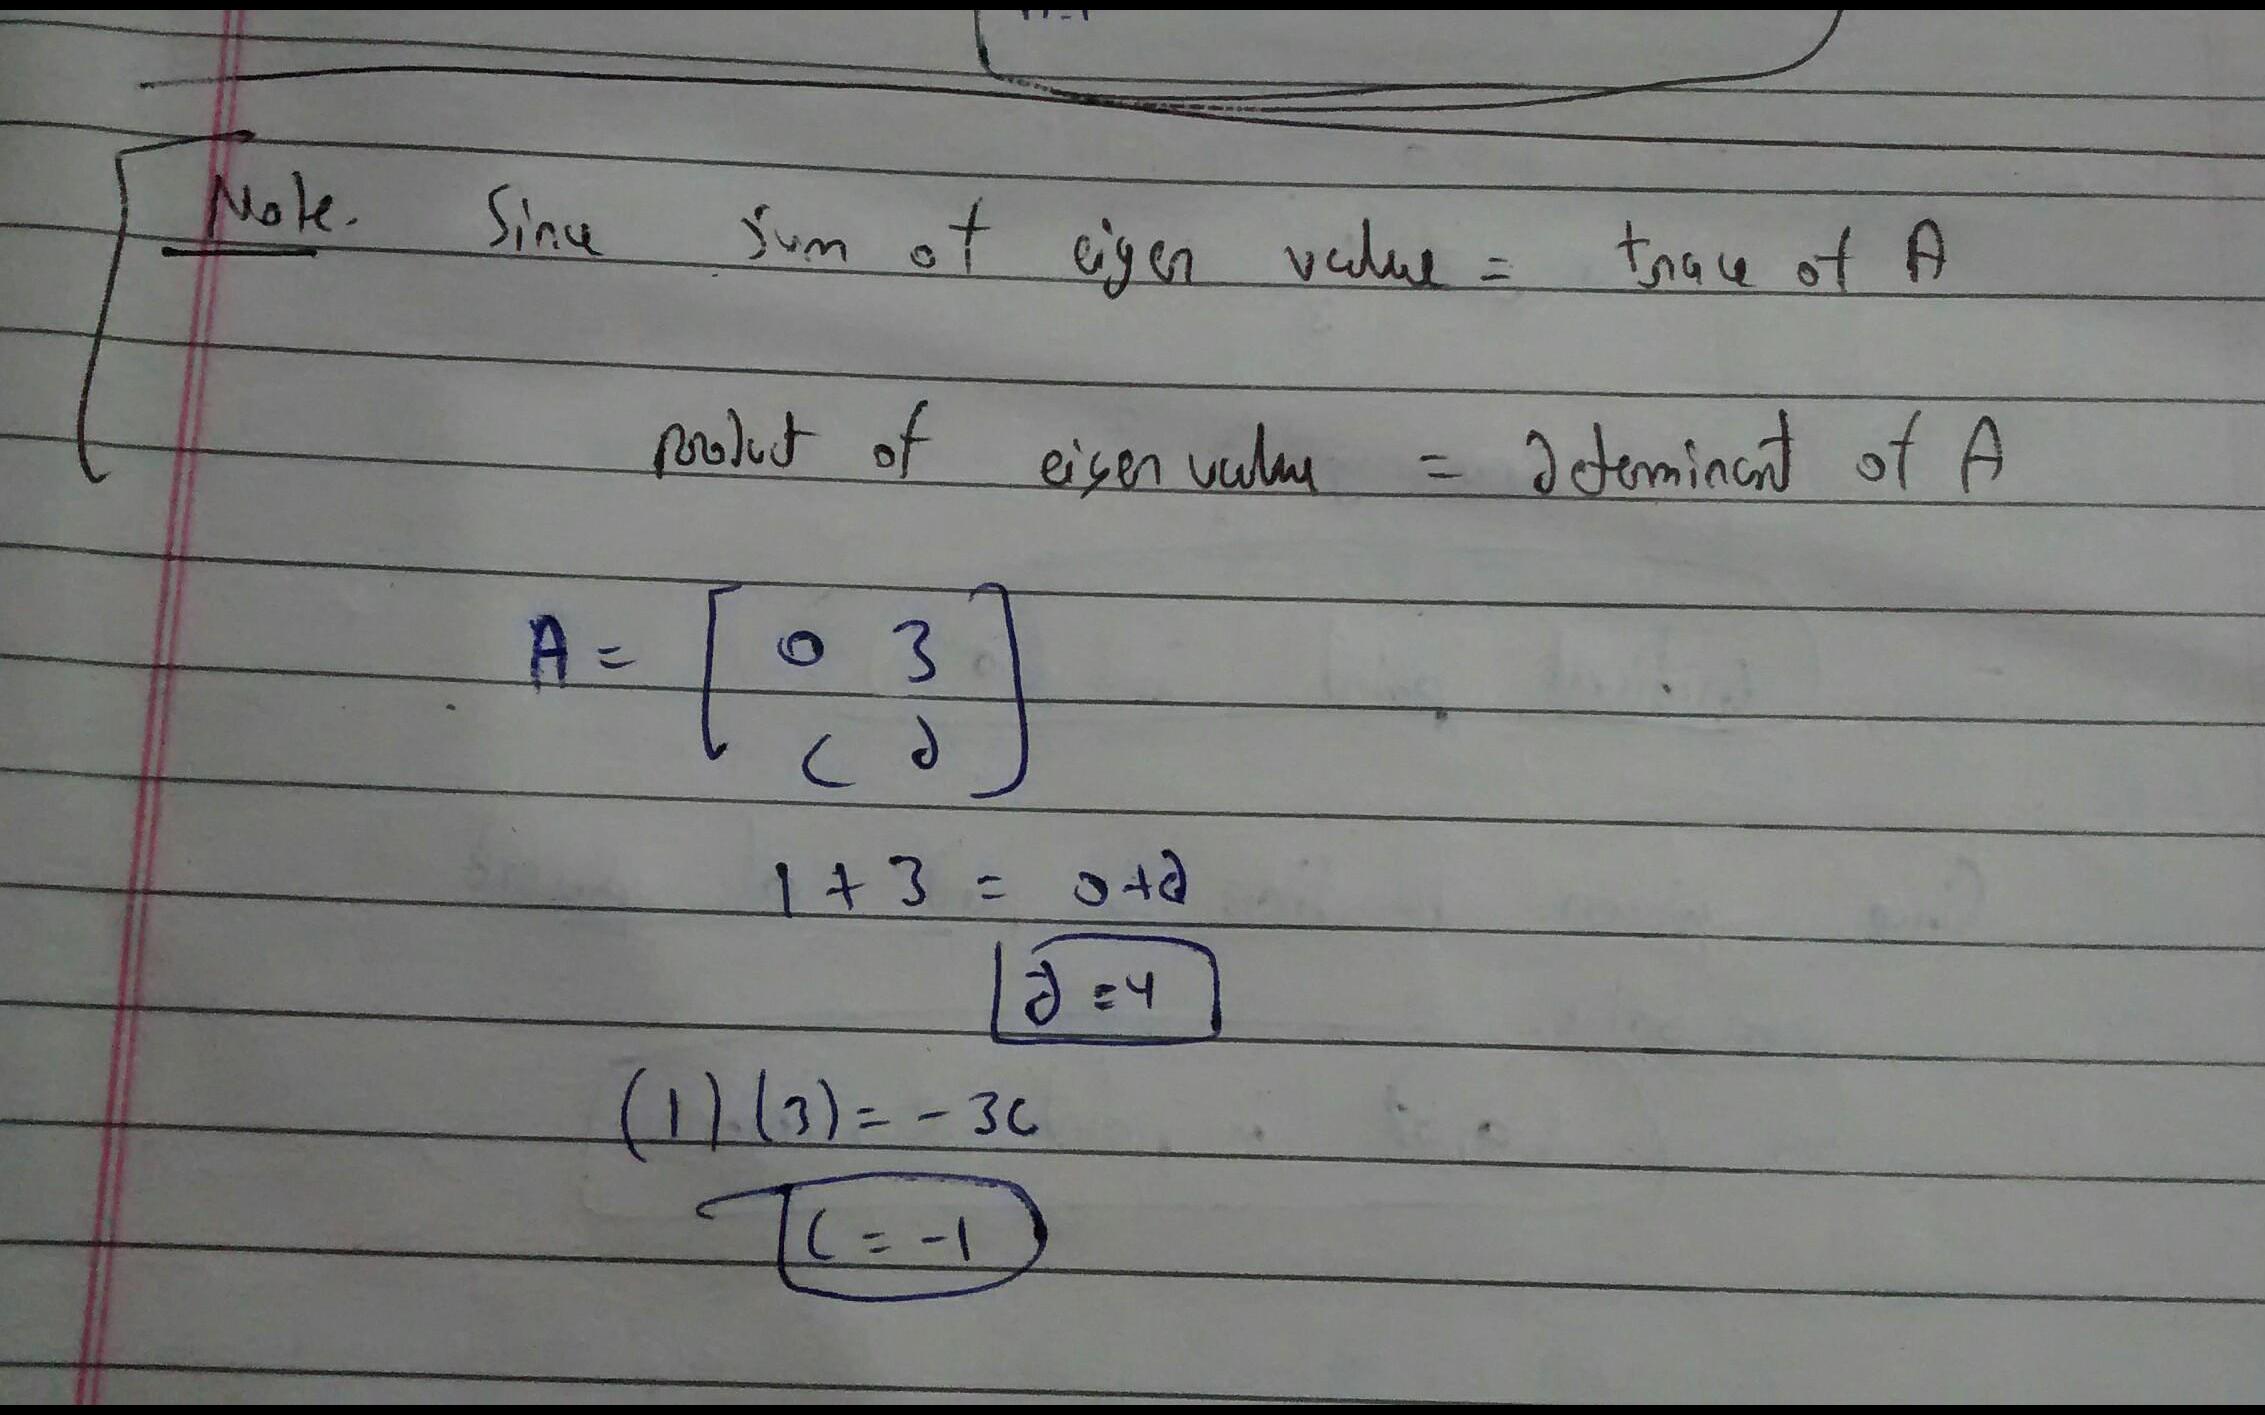 Note. Since sum of eigen value = trace of A
product of eigen value = determinant of A
A = [ 0 3
c d ]
1 + 3 = 0 + d
d = 4
(1).(3) = - 3c
c = -1